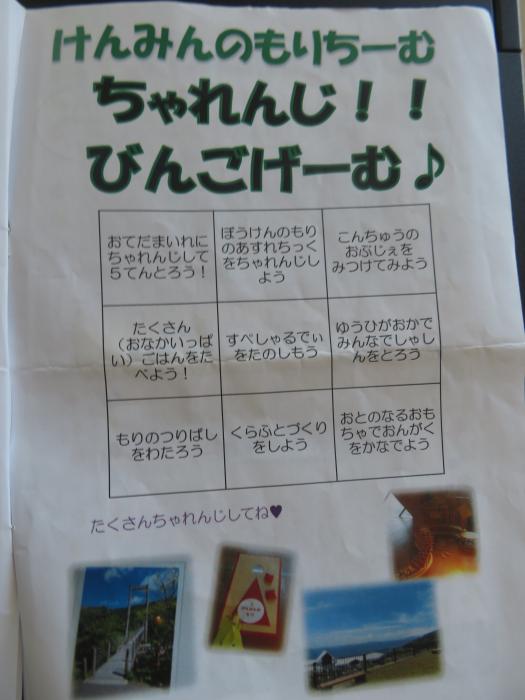 けんみんのもりちーむ
ちゃれんじ！！
びんごげーむ♪
おてだまいれに
ちゃれんじして
５てんとろう！
ぼうけんのもり
のあすれちっく
をちゃれんじし
よう
こんちゅうの
おぶじぇを
みつけてみよう
たくさん
（おなかいっぱ
い）ごはんをた
べよう！
すぺしゃるでぃ
をたのしもう
ゆうひがおかで
みんなでしゃし
んをとろう
もりのつりばし
をわたろう
くらふとづくり
をしよう
おとのなるおも
ちゃでおんがく
をかなでよう
たくさんちゃれんじしてね♥